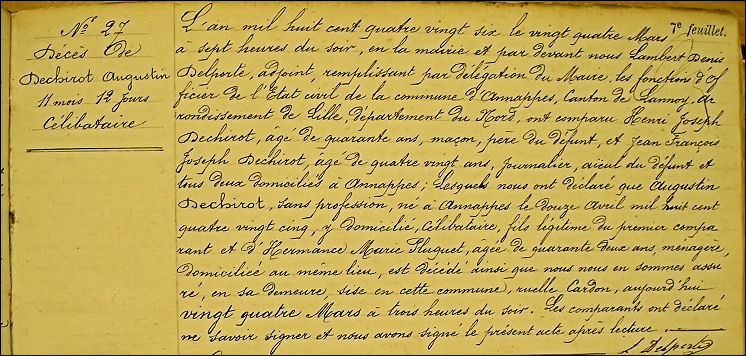 7e feuillet.
No 27
Décès De
Dechirot Augustin
11 mois 12 jours
Célibataire
L'an mil huit cent quatre vingt six le vingt quatre Mars
à sept heures du soir, en la mairie et par devant nous Lambert Denis
Delporte, adjoint, remplissant par délégation du Maire, les fonctions d'Of
ficier de l'Etat civil de la commune d'Annappes, Canton de Lannoy, Ar
rondissement de Lille, département du Nord, ont comparu Henri Joseph
Dechirot, âgé de quarante ans, maçon, père du défunt, et Jean François
Joseph Dechirot, âgé de quatre vingt ans, journalier, aïeul du défunt et
tous deux domiciliés à Annappes ; Lesquels nous ont déclaré que Augustin
Dechirot, sans profession, né à Annappes le douze Avril mil huit cent
quatre vingt cinq, y domicilié, célibataire, fils légitime du premier compa
rant et d'Hermance Marie Pluquet, âgée de quarante deux ans, ménagère,
domiciliée au même lieu, est décédé ainsi que nous nous en sommes assu
ré, en sa demeure, sise en cette commune, ruelle Cardon, aujourd'hui
vingt quatre Mars à trois heures du soir. Les comparants ont déclaré
ne savoir signer et nous avons signé le présent acte après lecture.
L Delporte